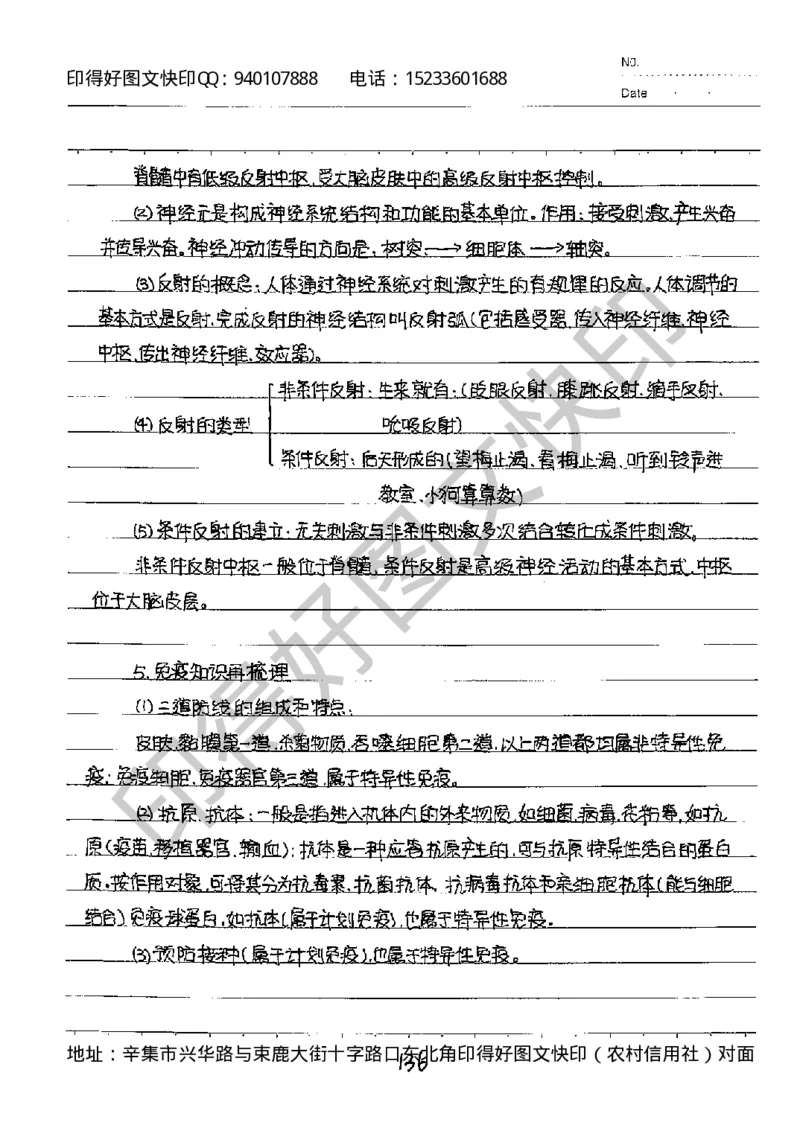 印得好图文快印QQ：940107888 电话：15233601688
No.
Date
脊髓中有低级反射中枢，受大脑皮肤中的高级反射中枢控制。
(2)神经元是构成神经系统结构和功能的基本单位。作用：接受刺激，产生兴奋
并传导兴奋。神经冲动传导的方向是：树突→细胞体→轴突。
(3)反射的概念：人体通过神经系统对刺激产生的有规律的反应。人体调节的
基本方式是反射，完成反射的神经结构叫反射弧(包括感受器、传入神经纤维、神经
中枢、传出神经纤维、效应器)。
非条件反射：生来就有：(眨眼反射、膝跳反射、缩手反射、
(4)反射的类型
吮吸反射)
条件反射：后天形成的(望梅止渴、看梅止渴、听到铃声进
教室、小狗算算数)
(5)条件反射的建立：无关刺激与非条件刺激多次结合转化成条件刺激。
非条件反射中枢一般位于脊髓，条件反射是高级神经活动的基本方式，中枢
位于大脑皮层。
5.免疫知识再梳理
(1)三道防线的组成和特点：
皮肤、黏膜第一道，杀菌物质、吞噬细胞第二道，以上两道都均属非特异性免
疫；免疫细胞、免疫器官第三道，属于特异性免疫。
(2)抗原、抗体：一般是指进入机体内的外来物质，如细菌、病毒、花粉等，如抗
原(疫苗、移植器官、输血)；抗体是一种应答抗原产生的，可与抗原特异性结合的蛋白
质。按作用对象，可将其分为抗毒素、抗菌抗体、抗病毒抗体和亲细胞抗体(能与细胞
结合)免疫球蛋白，如抗体(属于计划免疫)，也属于特异性免疫。
(3)预防接种(属于计划免疫)，也属于特异性免疫。
地址：辛集市兴华路与束鹿大街十字路口东北角印得好图文快印（农村信用社）对面
136
印得好图文快印